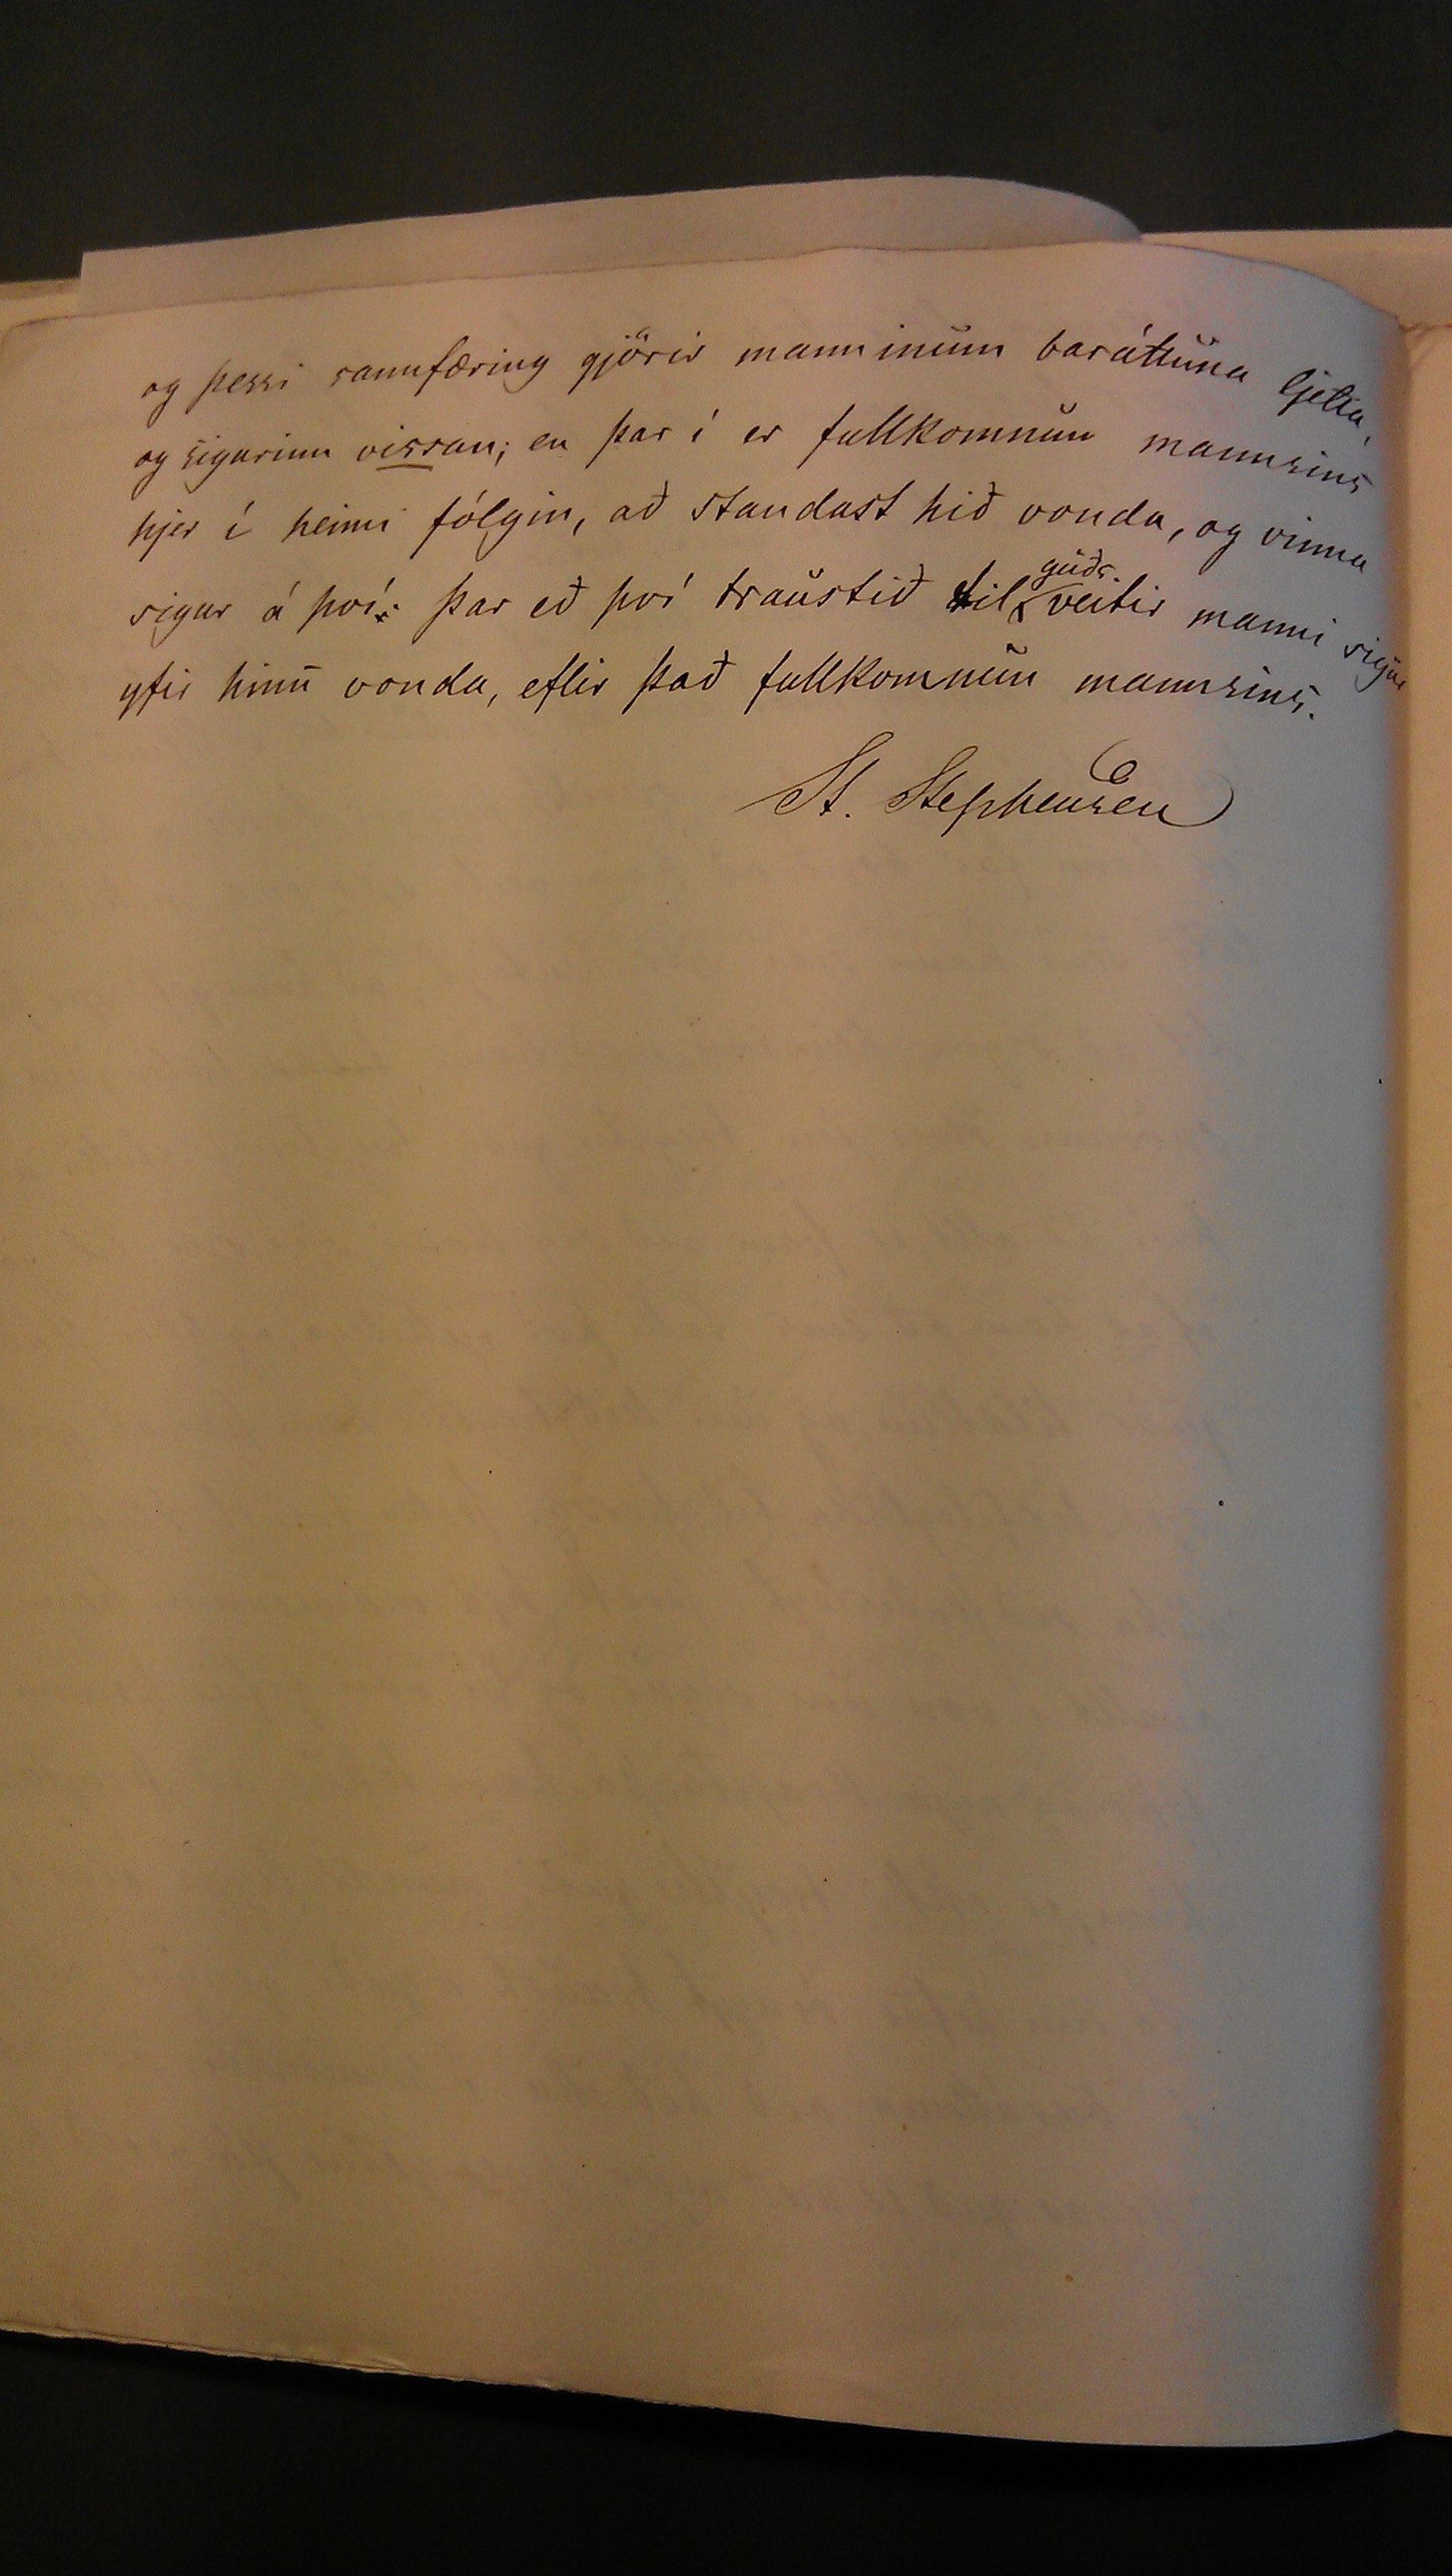 og þessi sannfæring gjörir manninum baráttuna ljetta,
og sigurinn vissan; en þar í er fullkomnun mannsins
hjer í heimi fólgin, að standast hið vonda, og vinna
sigur á því. Þar eð því traustið til guðs veitir manni sigur
yfir hinu vonda, eflir það fullkomnun mannsins.
St. Stephensen